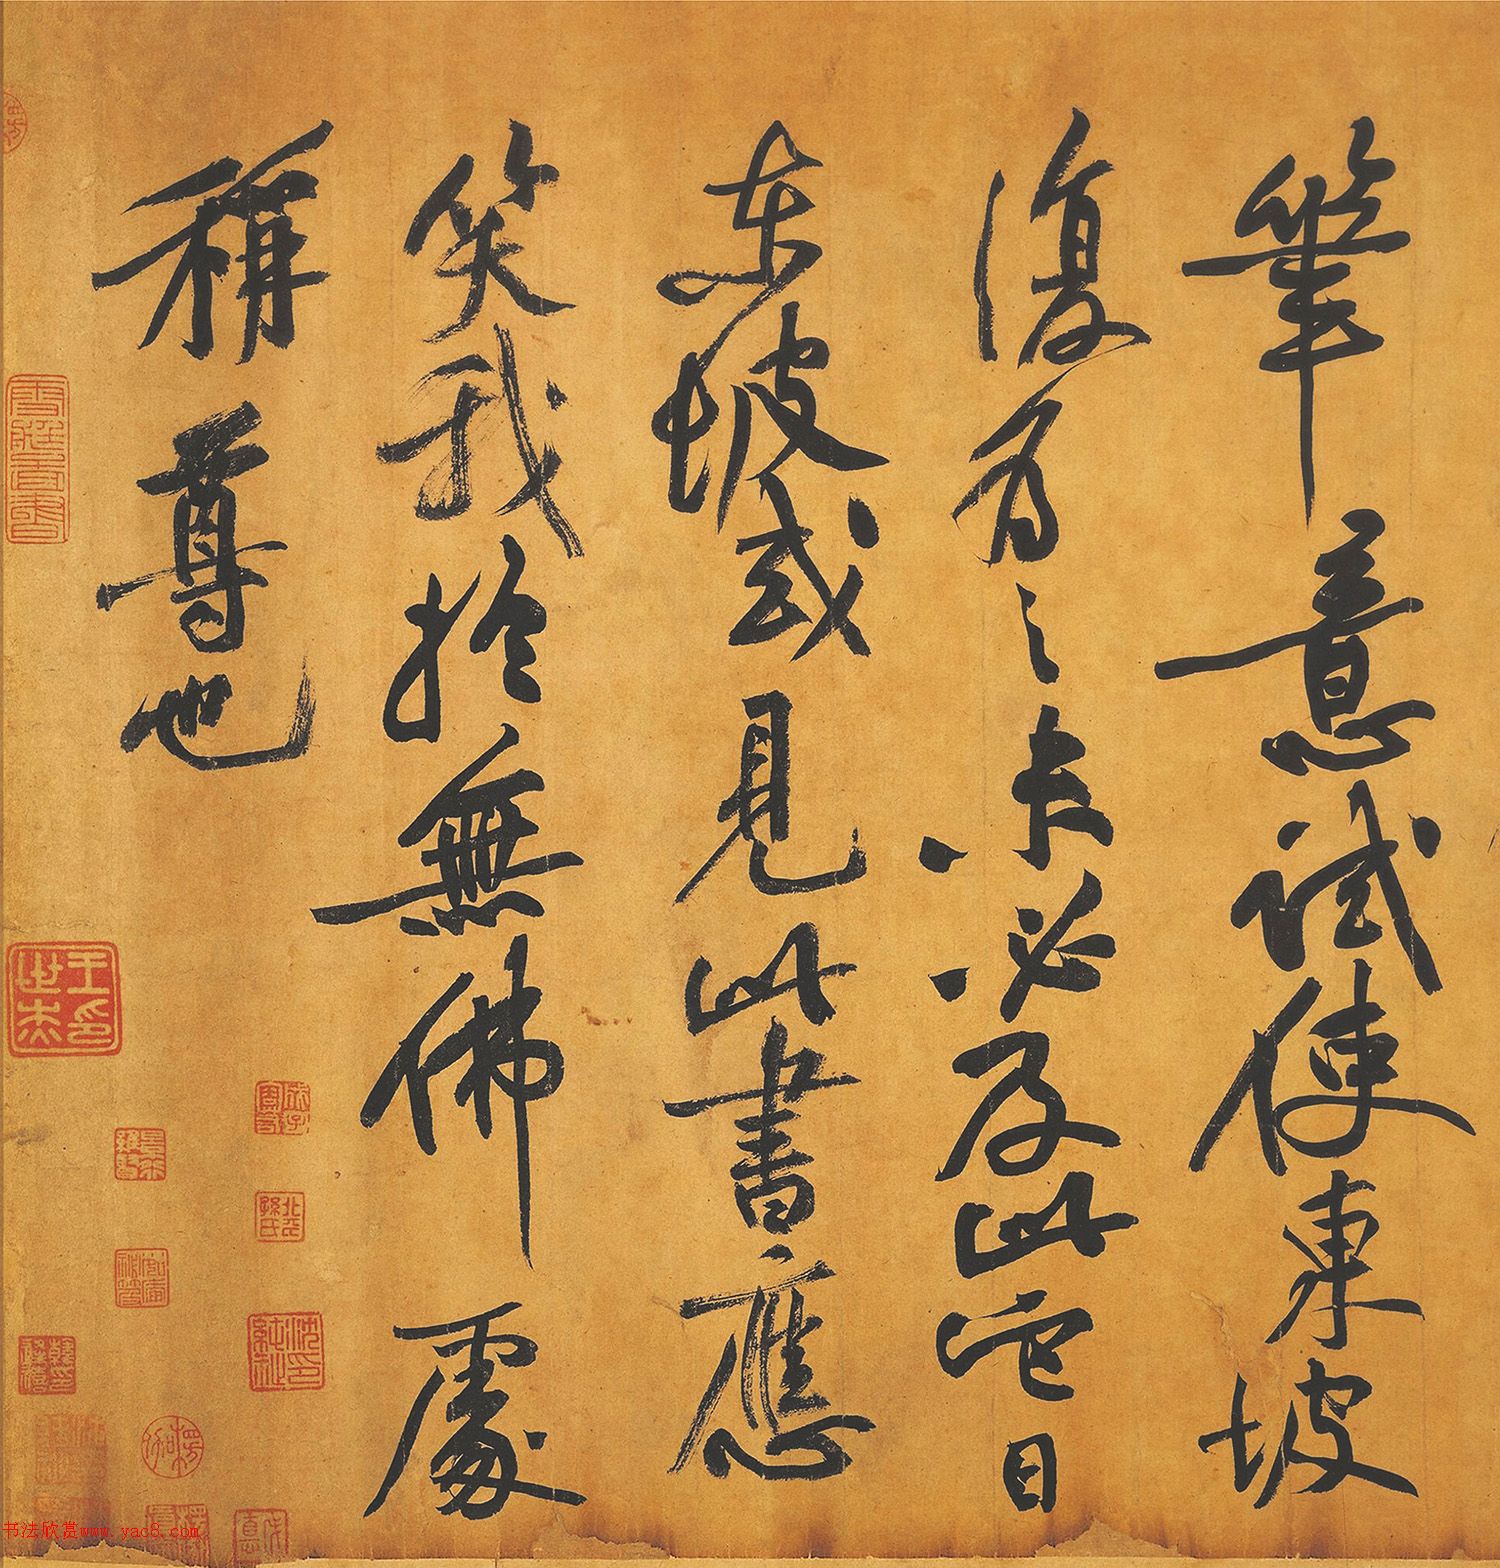 筆意試使東坡
復為之未必及此它日
東坡或見此書應
笑我於無佛處
稱尊也
王世杰印
书法欣赏www.yac8.com